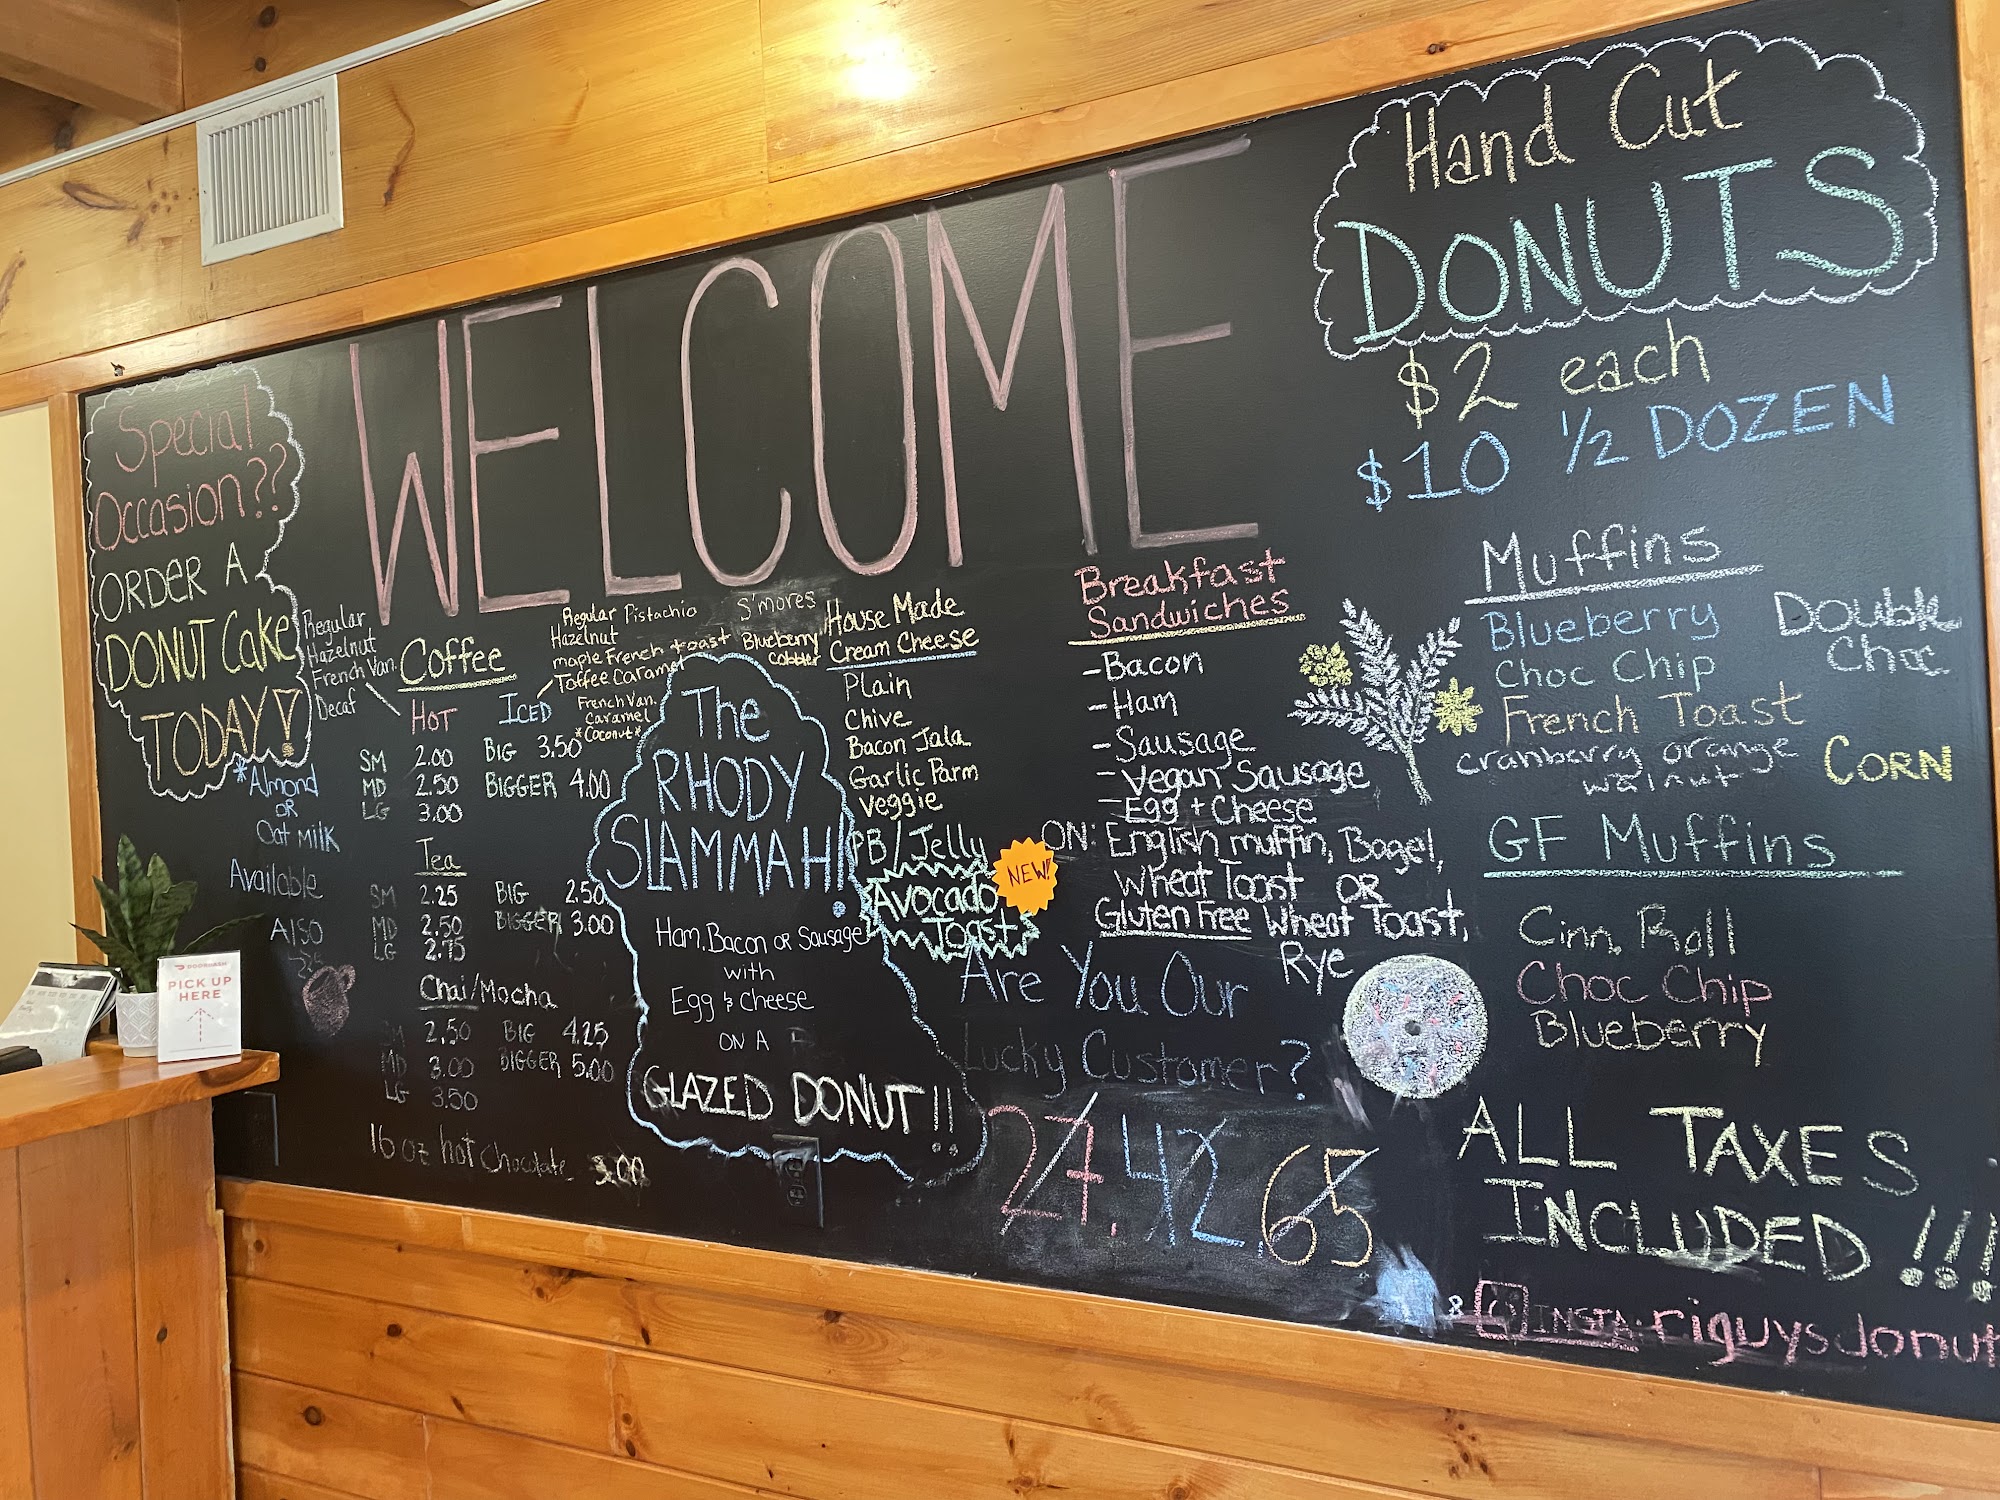 Special
Occasion??
ORDER A
DONUT Cake
TODAY!
WELCOME
Hand Cut
DONUTS
$2 each
$10 1/2 DOZEN
Regular
Hazelnut
French Van.
Decaf
Coffee
HOT
SM 2.00
MD 2.50
LG 3.00
Regular Pistachio S'mores
Hazelnut
maple French toast Blueberry
Cobbler
Toffee Caramel
French Van.
Caramel
*Coconut*
ICED
BIG 3.50
BIGGER 4.00
*Almond
OR
Oat Milk
Available
Also
Tea
SM 2.25 BIG 2.50
MD 2.50 BIGGER 3.00
LG 2.75
Chai/Mocha
SM 2.50 BIG 4.25
MD 3.00 BIGGER 5.00
LG 3.50
16 oz hot chocolate 3.00
DOORDASH
PICK UP
HERE
The
RHODY
SLAMMAH!
Ham, Bacon or Sausage
with
Egg & Cheese
ON A
GLAZED DONUT!!
House Made
Cream Cheese
Plain
Chive
Bacon Jala
Garlic Parm
Veggie
PB/Jelly
Avocado
Toast
NEW!
Breakfast
Sandwiches
-Bacon
-Ham
-Sausage
-Vegan Sausage
-Egg + Cheese
ON: English muffin, Bagel,
Wheat Toast OR
Gluten Free Wheat Toast,
Rye
Are You Our
Lucky Customer?
27. 42. 65
Muffins
Blueberry
Choc Chip
French Toast
cranberry orange
walnut
Double
Choc
CORN
GF Muffins
Cinn. Roll
Choc Chip
Blueberry
ALL TAXES
INCLUDED!!!
& INSTA: riguysdonut